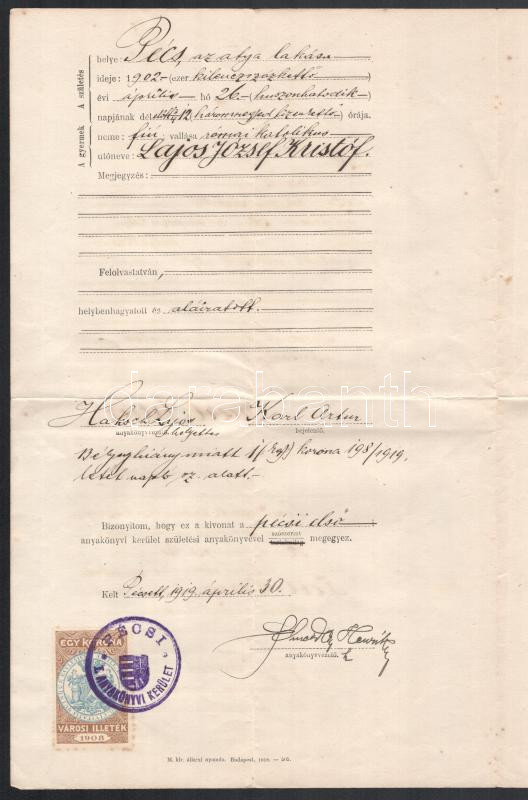 A gyermek A születés
helye: Pécs, az atya lakása
ideje: 1902.- (ezer kilenczszázkettő)
évi április hó 26.- (huszonhatodik)
napjának dél 12 háromnegyed órája.
neme: fiú vallása római katolikus
utóneve: Lajos József Kristóf.
Megjegyzés:
Felolvastatván,
helybenhagyatott és aláiratott.
darabanth
Haksch Lajos Karl Artur
anyakönyvvezető helyettes bejelentő.
Bélyeghiány miatt 1 (egy) korona 198/1919.
letét napló sz. alatt.-
Bizonyítom, hogy ez a kivonat a pécsi első
anyakönyvi kerület születési anyakönyvével szószerint megegyez.
Kelt Pécsett, 1919. április 30.
anyakönyvvezető.
EGY KORONA
VÁROSI ILLETÉK
1908
PÉCSI
I. ANYAKÖNYVI KERÜLET
M. kir. állami nyomda. Budapest, 1918.